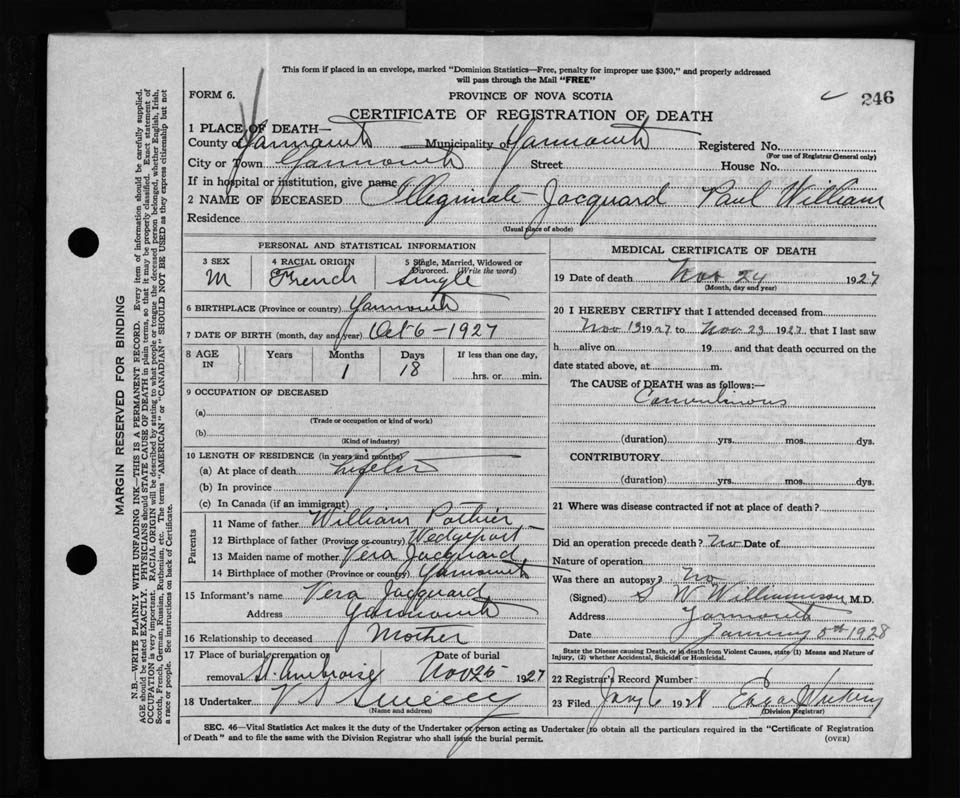 This form if placed in an envelope, marked "Dominion Statistics—Free, penalty for improper use $300," and properly addressed
will pass through the Mail "FREE"
FORM 6. PROVINCE OF NOVA SCOTIA 246
CERTIFICATE OF REGISTRATION OF DEATH
1 PLACE OF DEATH—
County of Yarmouth Municipality of Yarmouth Registered No.
(For use of Registrar General only)
City or Town Yarmouth Street House No.
If in hospital or institution, give name
2 NAME OF DECEASED Illegimate Jacquard Paul William
Residence
(Usual place of abode)
PERSONAL AND STATISTICAL INFORMATION
3 SEX 4 RACIAL ORIGIN 5 Single, Married, Widowed or Divorced. (Write the word)
M French Single
6 BIRTHPLACE (Province or country) Yarmouth
7 DATE OF BIRTH (month, day and year) Oct 6 - 1927
8 AGE IN Years Months Days If less than one day,
1 18 hrs. or min.
9 OCCUPATION OF DECEASED
(a)
(Trade or occupation or kind of work)
(b)
(Kind of industry)
10 LENGTH OF RESIDENCE (in years and months)
(a) At place of death
(b) In province
(c) In Canada (if an immigrant)
Parents
11 Name of father William Pothier
12 Birthplace of father (Province or country) Wedgeport
13 Maiden name of mother Vera Jacquard
14 Birthplace of mother (Province or country) Yarmouth
15 Informant's name Vera Jacquard
Address Yarmouth
16 Relationship to deceased Mother
17 Place of burial, cremation or Date of burial
removal St. Ambroise Nov 25 1927
18 Undertaker V S Sweeny
(Name and address)
MEDICAL CERTIFICATE OF DEATH
19 Date of death Nov 24 1927
(Month, day and year)
20 I HEREBY CERTIFY that I attended deceased from
Nov 13 1927 to Nov 23 1927 that I last saw
h alive on 19 and that death occurred on the
date stated above, at m.
The CAUSE of DEATH was as follows:—
Convulsions
(duration) yrs. mos. dys.
CONTRIBUTORY
(duration) yrs. mos. dys.
21 Where was disease contracted if not at place of death?
Did an operation precede death? No Date of
Nature of operation
Was there an autopsy? No
(Signed) S W Williamson M.D.
Address Yarmouth
Date January 5th 1928
State the Disease causing Death, or in death from Violent Causes, state (1) Means and Nature of
Injury, (2) whether Accidental, Suicidal or Homicidal.
22 Registrar's Record Number
23 Filed Jany 6 1928
(Division Registrar)
SEC. 46—Vital Statistics Act makes it the duty of the Undertaker or person acting as Undertaker to obtain all the particulars required in the "Certificate of Registration
of Death" and to file the same with the Division Registrar who shall issue the burial permit. (OVER)
MARGIN RESERVED FOR BINDING
N.B.—WRITE PLAINLY WITH UNFADING INK—THIS IS A PERMANENT RECORD. Every item of information should be carefully supplied.
AGE should be stated EXACTLY. PHYSICIANS should STATE CAUSE OF DEATH in plain terms, so that it may be properly classified. Exact statement of
OCCUPATION is very important. RACIAL ORIGIN will be described by stating to what people or tongue the deceased person belonged, whether English, Irish,
Scotch, French, German, Russian, Ruthenian, etc. The terms "AMERICAN" or "CANADIAN" SHOULD NOT BE USED as they express citizenship but not
a race or people. See instructions on back of Certificate.